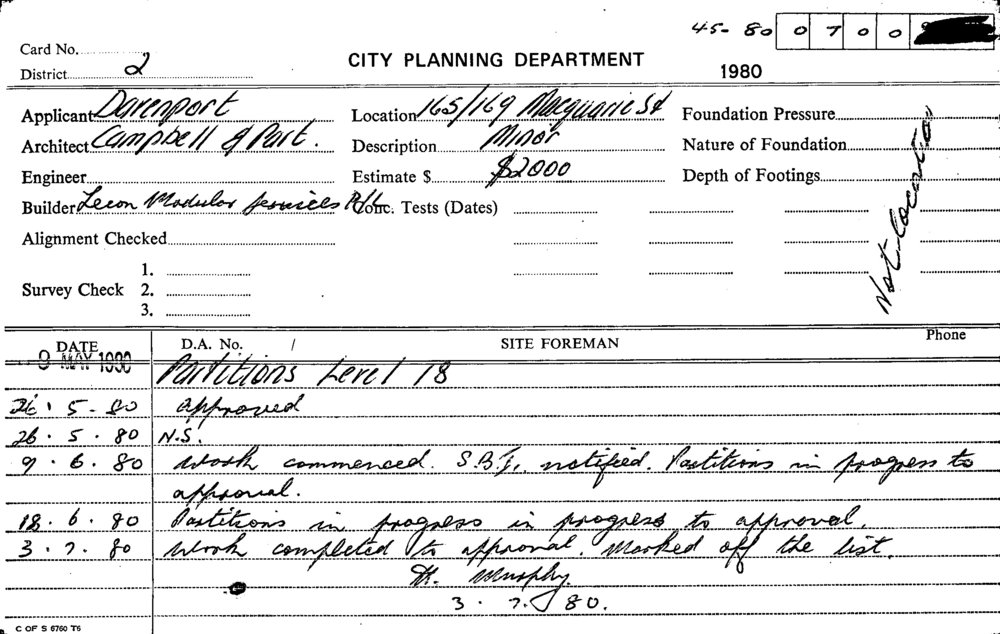 45- 80 0 7 0 0
Card No.
District 2
CITY PLANNING DEPARTMENT
1980
Applicant Davenport
Location 165/169 Macquarie St
Foundation Pressure
Architect Campbell & Part.
Description Minor
Nature of Foundation
Engineer
Estimate $ $2000
Depth of Footings
Builder Lecon Modular Services P/L
Conc. Tests (Dates)
Not located
Alignment Checked
1.
Survey Check 2.
3.
DATE D.A. No. / SITE FOREMAN Phone
9 MAY 1980 Partitions Level 18
26 . 5 - 80 approved
26 . 5 . 80 N.S.
9 . 6 . 80 Work commenced. notified. Partitions in progress to
approval.
18 . 6 . 80 Partitions in progress in progress to approval.
3 . 7 . 80 Work completed to approval. Marked off the list.
Murphy.
3 . 7 . 80.
C OF S 6760 T6